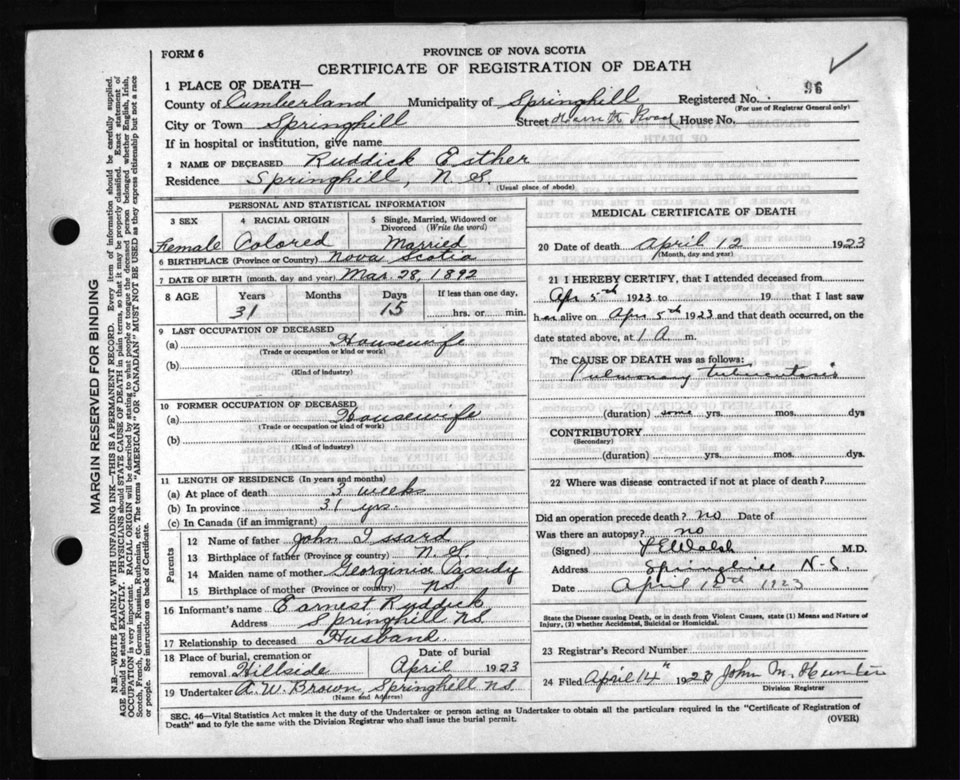 FORM 6
PROVINCE OF NOVA SCOTIA
CERTIFICATE OF REGISTRATION OF DEATH
96
1 PLACE OF DEATH—
County of Cumberland Municipality of Springhill Registered No.
(For use of Registrar General only)
City or Town Springhill Street Road House No.
If in hospital or institution, give name
2 NAME OF DECEASED Ruddick Esther
Residence Springhill, N. S. (Usual place of abode)
PERSONAL AND STATISTICAL INFORMATION
3 SEX 4 RACIAL ORIGIN 5 Single, Married, Widowed or Divorced (Write the word)
Female Colored Married
6 BIRTHPLACE (Province or Country) Nova Scotia
7 DATE OF BIRTH (month, day and year) Mar 28, 1892
8 AGE Years Months Days If less than one day,
31 15 hrs. or min.
9 LAST OCCUPATION OF DECEASED
(a) Housewife
(Trade or occupation or kind or work)
(b)
(Kind of industry)
10 FORMER OCCUPATION OF DECEASED
(a) Housewife
(Trade or occupation or kind of work)
(b)
(Kind of industry)
11 LENGTH OF RESIDENCE (In years and months)
(a) At place of death 3 weeks
(b) In province 31 yrs.
(c) In Canada (if an immigrant)
Parents
12 Name of father John Issard
13 Birthplace of father (Province or country) N. S.
14 Maiden name of mother Georginia Cassidy
15 Birthplace of mother (Province or country) NS.
16 Informant's name Earnest Ruddick
Address Springhill NS.
17 Relationship to deceased Husband
18 Place of burial, cremation or Date of burial
removal Hillside April 1923
19 Undertaker A. W. Brown, Springhill NS.
(Name and Address)
MEDICAL CERTIFICATE OF DEATH
20 Date of death April 12 1923
(Month, day and year)
21 I HEREBY CERTIFY, that I attended deceased from
Apr 5th 1923 to 19 that I last saw
her alive on Apr 5th 1923 and that death occurred, on the
date stated above, at 1 A. m.
The CAUSE OF DEATH was as follows:
Pulmonary tuberculosis
(duration) some yrs. mos. dys
CONTRIBUTORY
(Secondary)
(duration) yrs. mos. dys.
22 Where was disease contracted if not at place of death?
Did an operation precede death? no Date of
Was there an autopsy? no
(Signed) Walsh M.D.
Address Springhill N.S.
Date April 12th 1923
State the Disease causing Death, or in death from Violent Causes, state (1) Means and Nature of
Injury, (2) whether Accidental, Suicidal or Homicidal.
23 Registrar's Record Number
24 Filed April 14th 1923 John M. Hunter
Division Registrar
SEC. 46—Vital Statistics Act makes it the duty of the Undertaker or person acting as Undertaker to obtain all the particulars required in the "Certificate of Registration of
Death" and to fyle the same with the Division Registrar who shall issue the burial permit. (OVER)
MARGIN RESERVED FOR BINDING
N.B.—WRITE PLAINLY WITH UNFADING INK—THIS IS A PERMANENT RECORD. Every item of information should be carefully supplied.
AGE should be stated EXACTLY. PHYSICIANS should STATE CAUSE OF DEATH in plain terms, so that it may be properly classified. Exact statement of
OCCUPATION is very important. RACIAL ORIGIN will be described by stating to what people or tongue the deceased person belonged whether English, Irish,
Scotch, French, German, Russian, Ruthenian, etc. The terms "AMERICAN" OR "CANADIAN" MUST NOT BE USED as they express citizenship but not a race
or people. See instructions on back of Certificate.